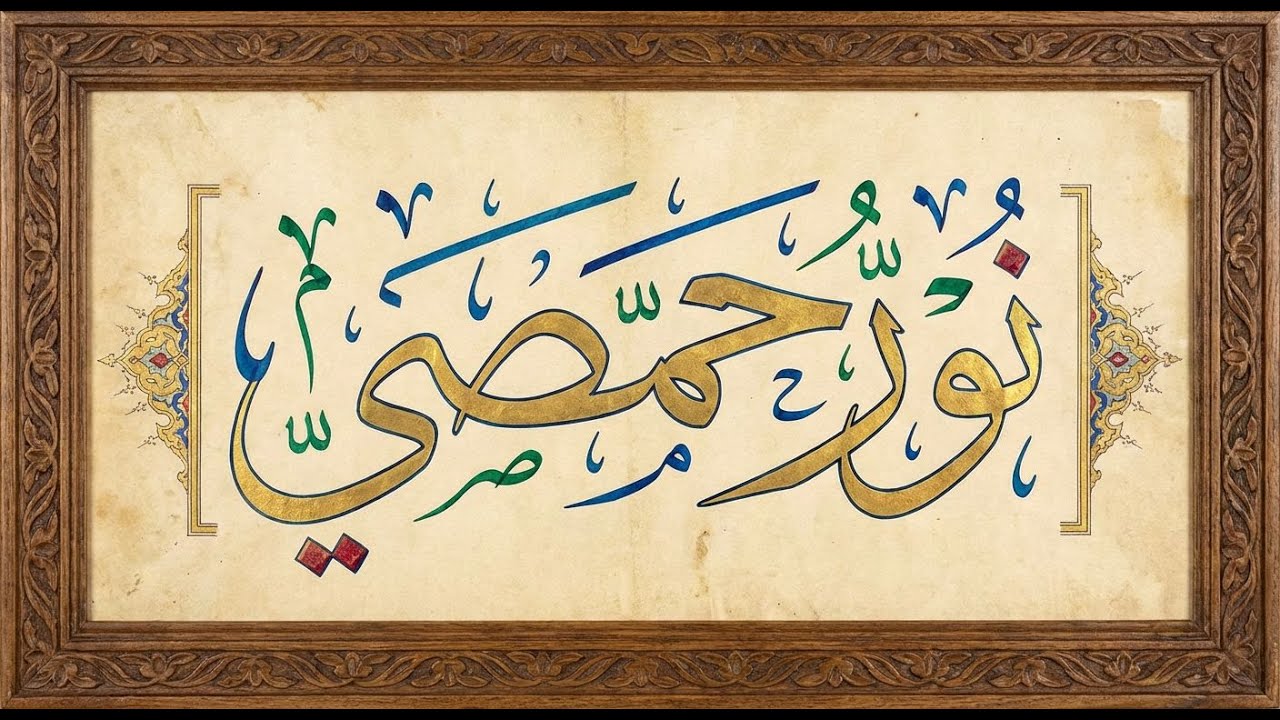 نُورُّ حمَّصَيِّ